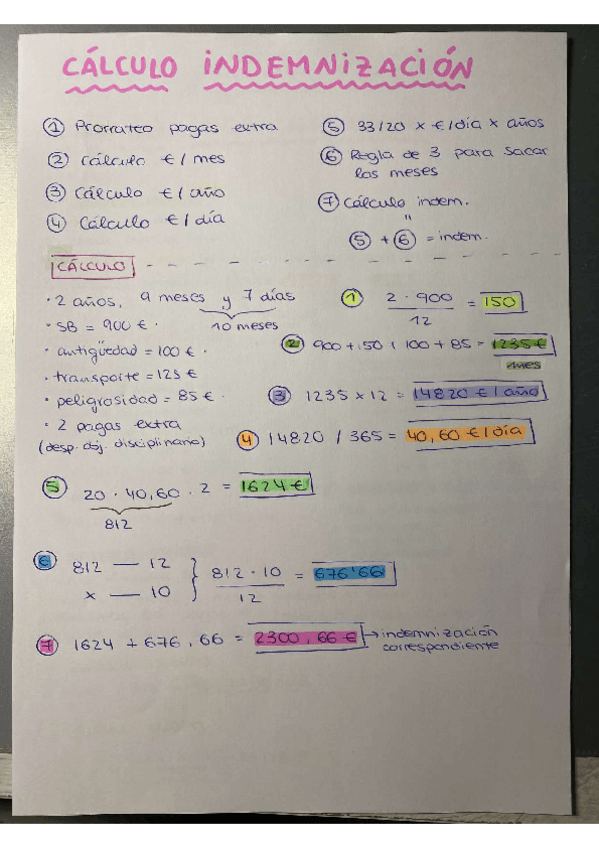 CÁLCULO INDEMNIZACIÓN
① Prorrateo pagas extra
② Cálculo € / mes
③ Cálculo € / año
④ Cálculo € / día
⑤ 33/20 x €/día x años
⑥ Regla de 3 para sacar
los meses
⑦ Cálculo indem.
"
⑤ + ⑥ = indem.
CÁLCULO
· 2 años, 9 meses y 7 días
10 meses
· SB = 900 € ·
· antigüedad = 100 € ·
· transporte = 125 €
· peligrosidad = 85 € ·
· 2 pagas extra
(desp. obj. disciplinario)
① 2 · 900 / 12 = 150
② 900 + 150 + 100 + 85 = 1235 €
/mes
③ 1235 x 12 = 14820 € / año
④ 14820 / 365 = 40,60 € / día
⑤ 20 · 40,60 · 2 = 1624 €
812
⑥ 812 — 12
x — 10
812 · 10 / 12 = 676'66
⑦ 1624 + 676,66 = 2300,66 € → indemnización
correspondiente